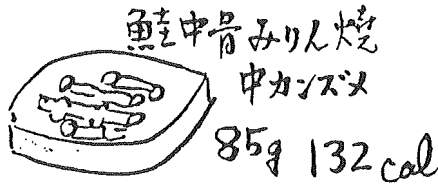 鮭中骨みりん焼
中カンズメ
85g 132cal